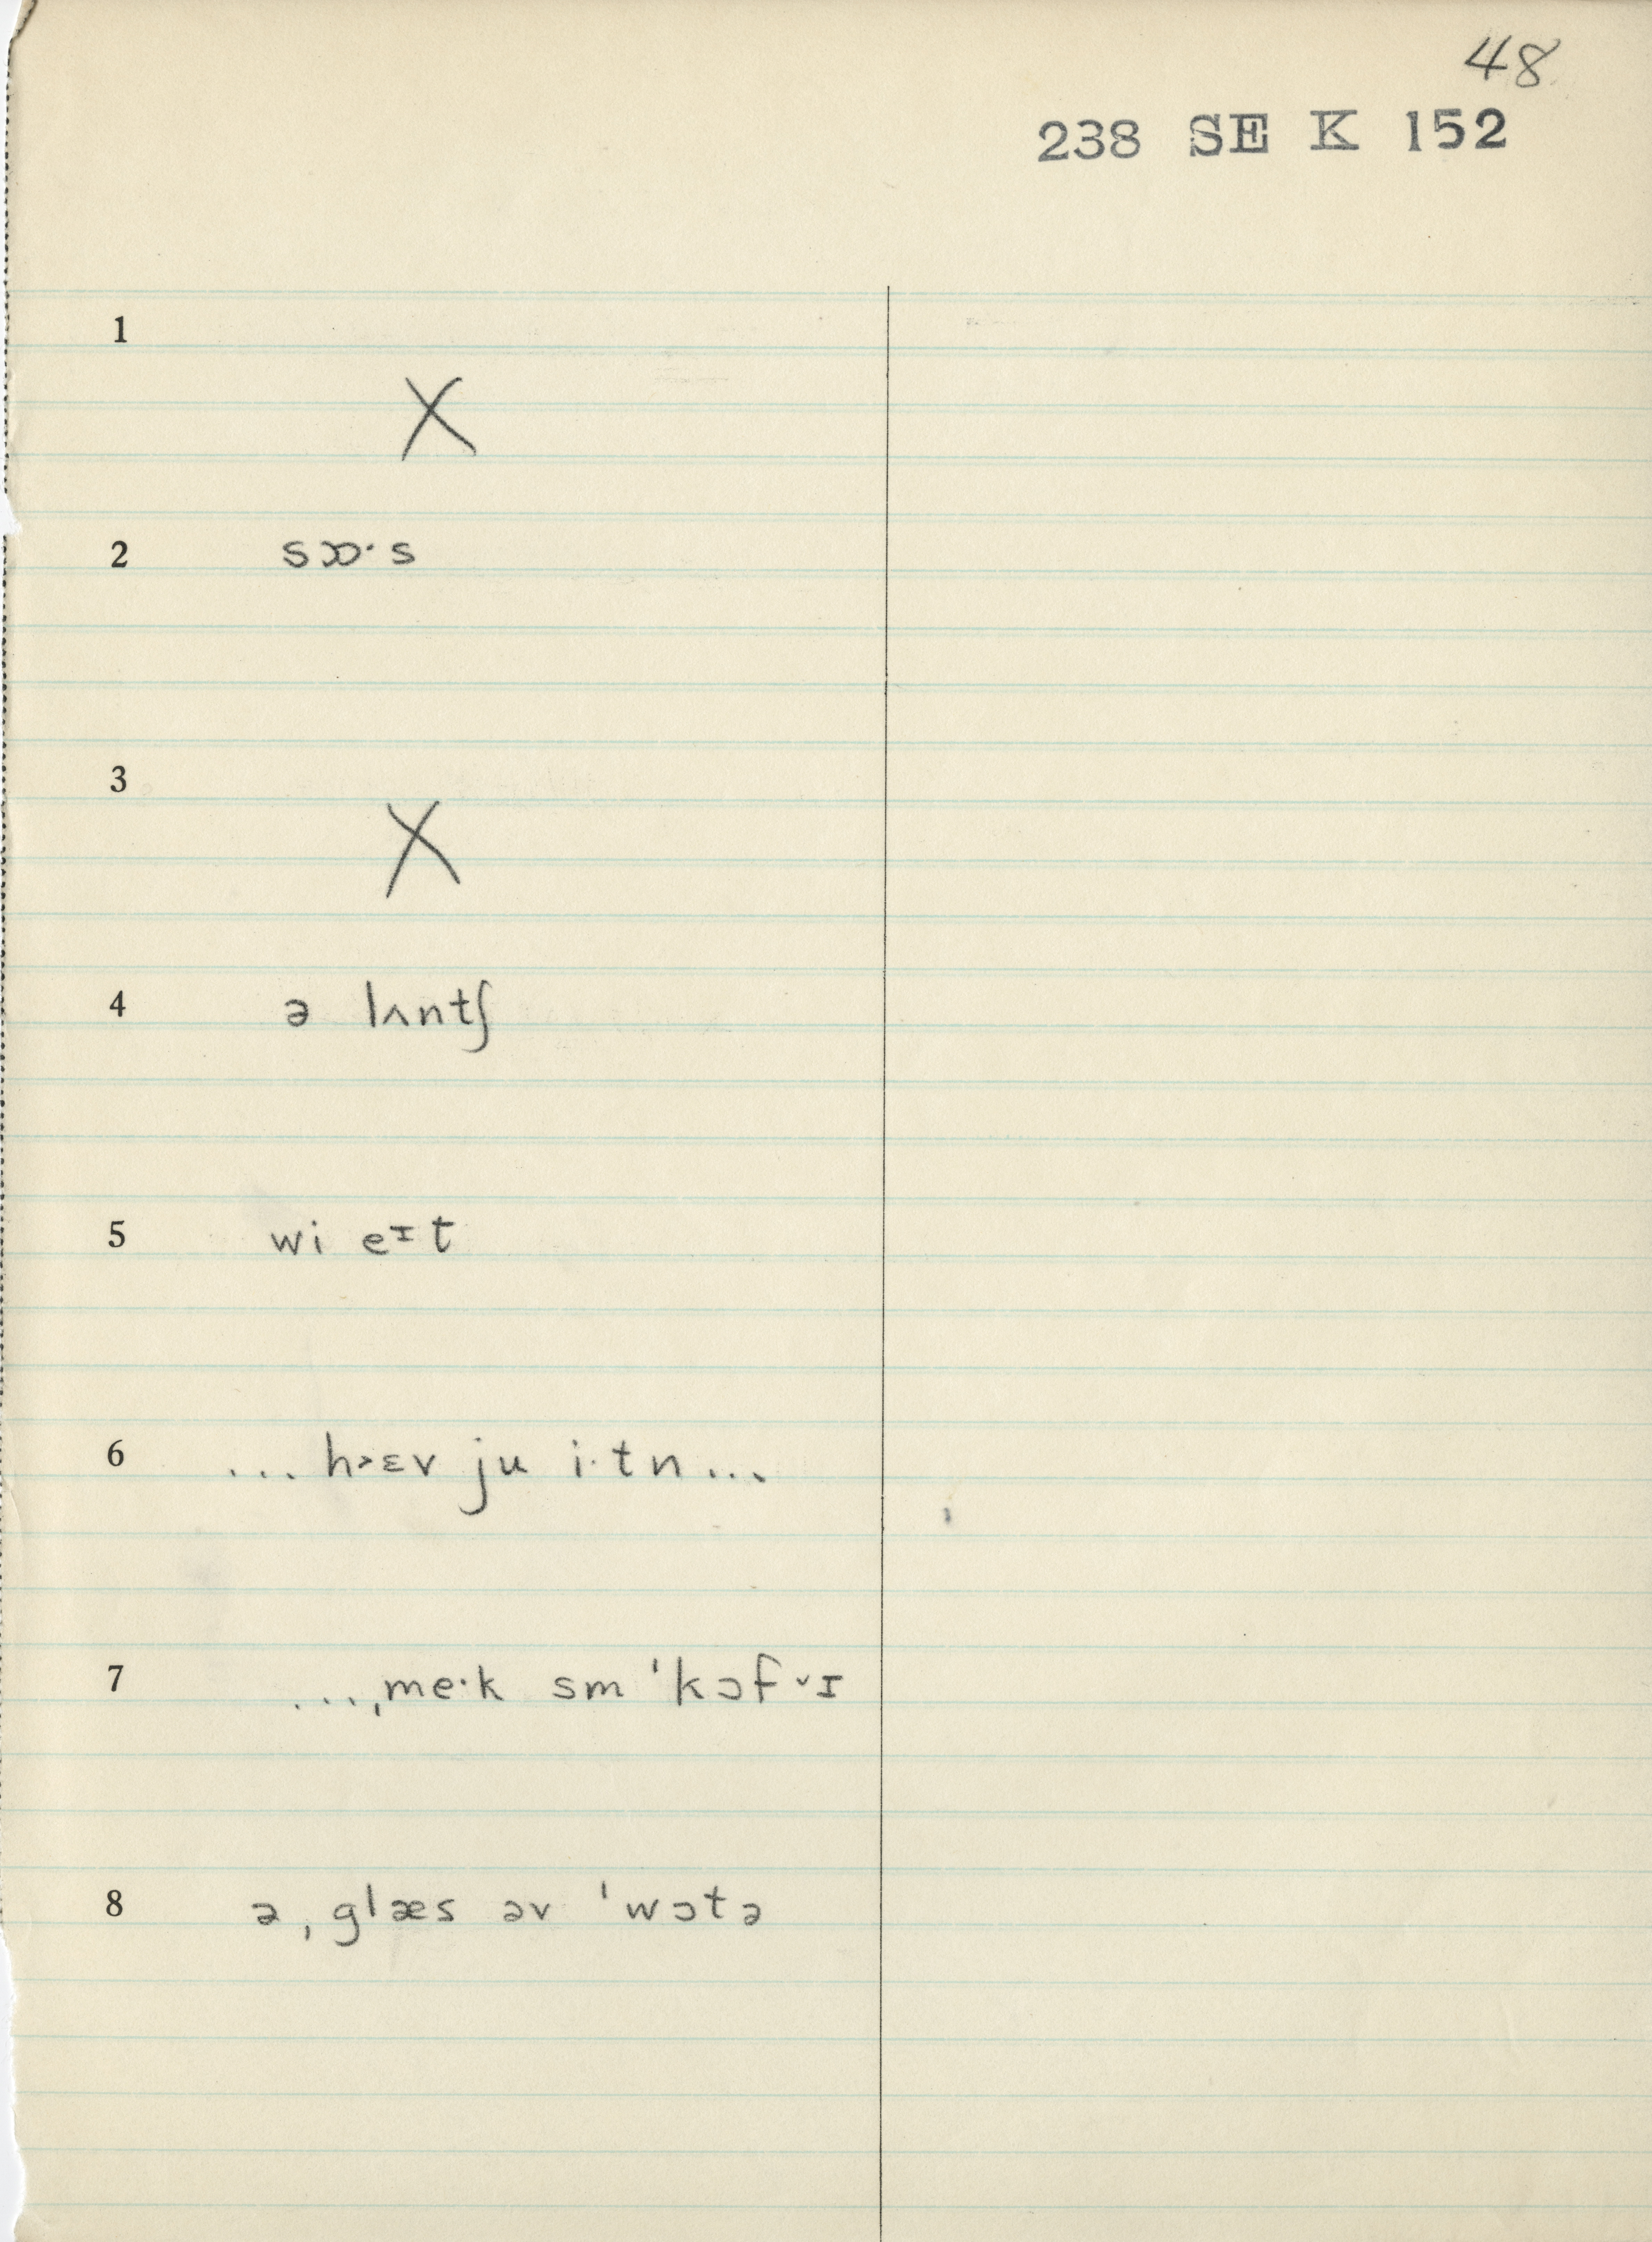 48
238 SE K 152
1
X
2 sɔɒ·s
3
X
4 ə lʌntʃ
5 wi eɪt
6 ... h˃ɛv ju i·tn ...
7 ... ˌme·k sm ˈkɔf˅ɪ
8 ə ˌglæs əv ˈwɔtə